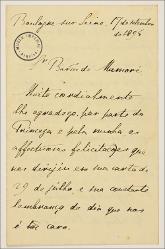 Boulogne sur Seine, 17 de setembro
de 1894
Sr. Barão de Mamoré
Muito cordialmente
lhe agradeço, por parte da
Princeza e pela minha as
affectuosas felicitações que
nos dirijio em sua carta de
29 de julho, e sua
lembrança do dia que nos
é tão caro.